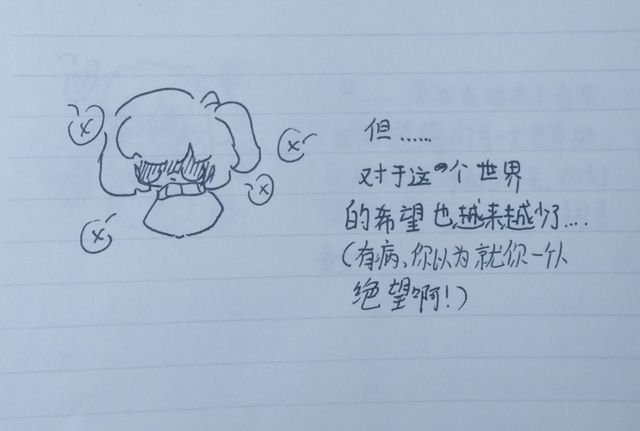 但……
对于这个世界
的希望也越来越少了…
（有病、你以为就你一个人
绝望啊！）
x
x
x
x